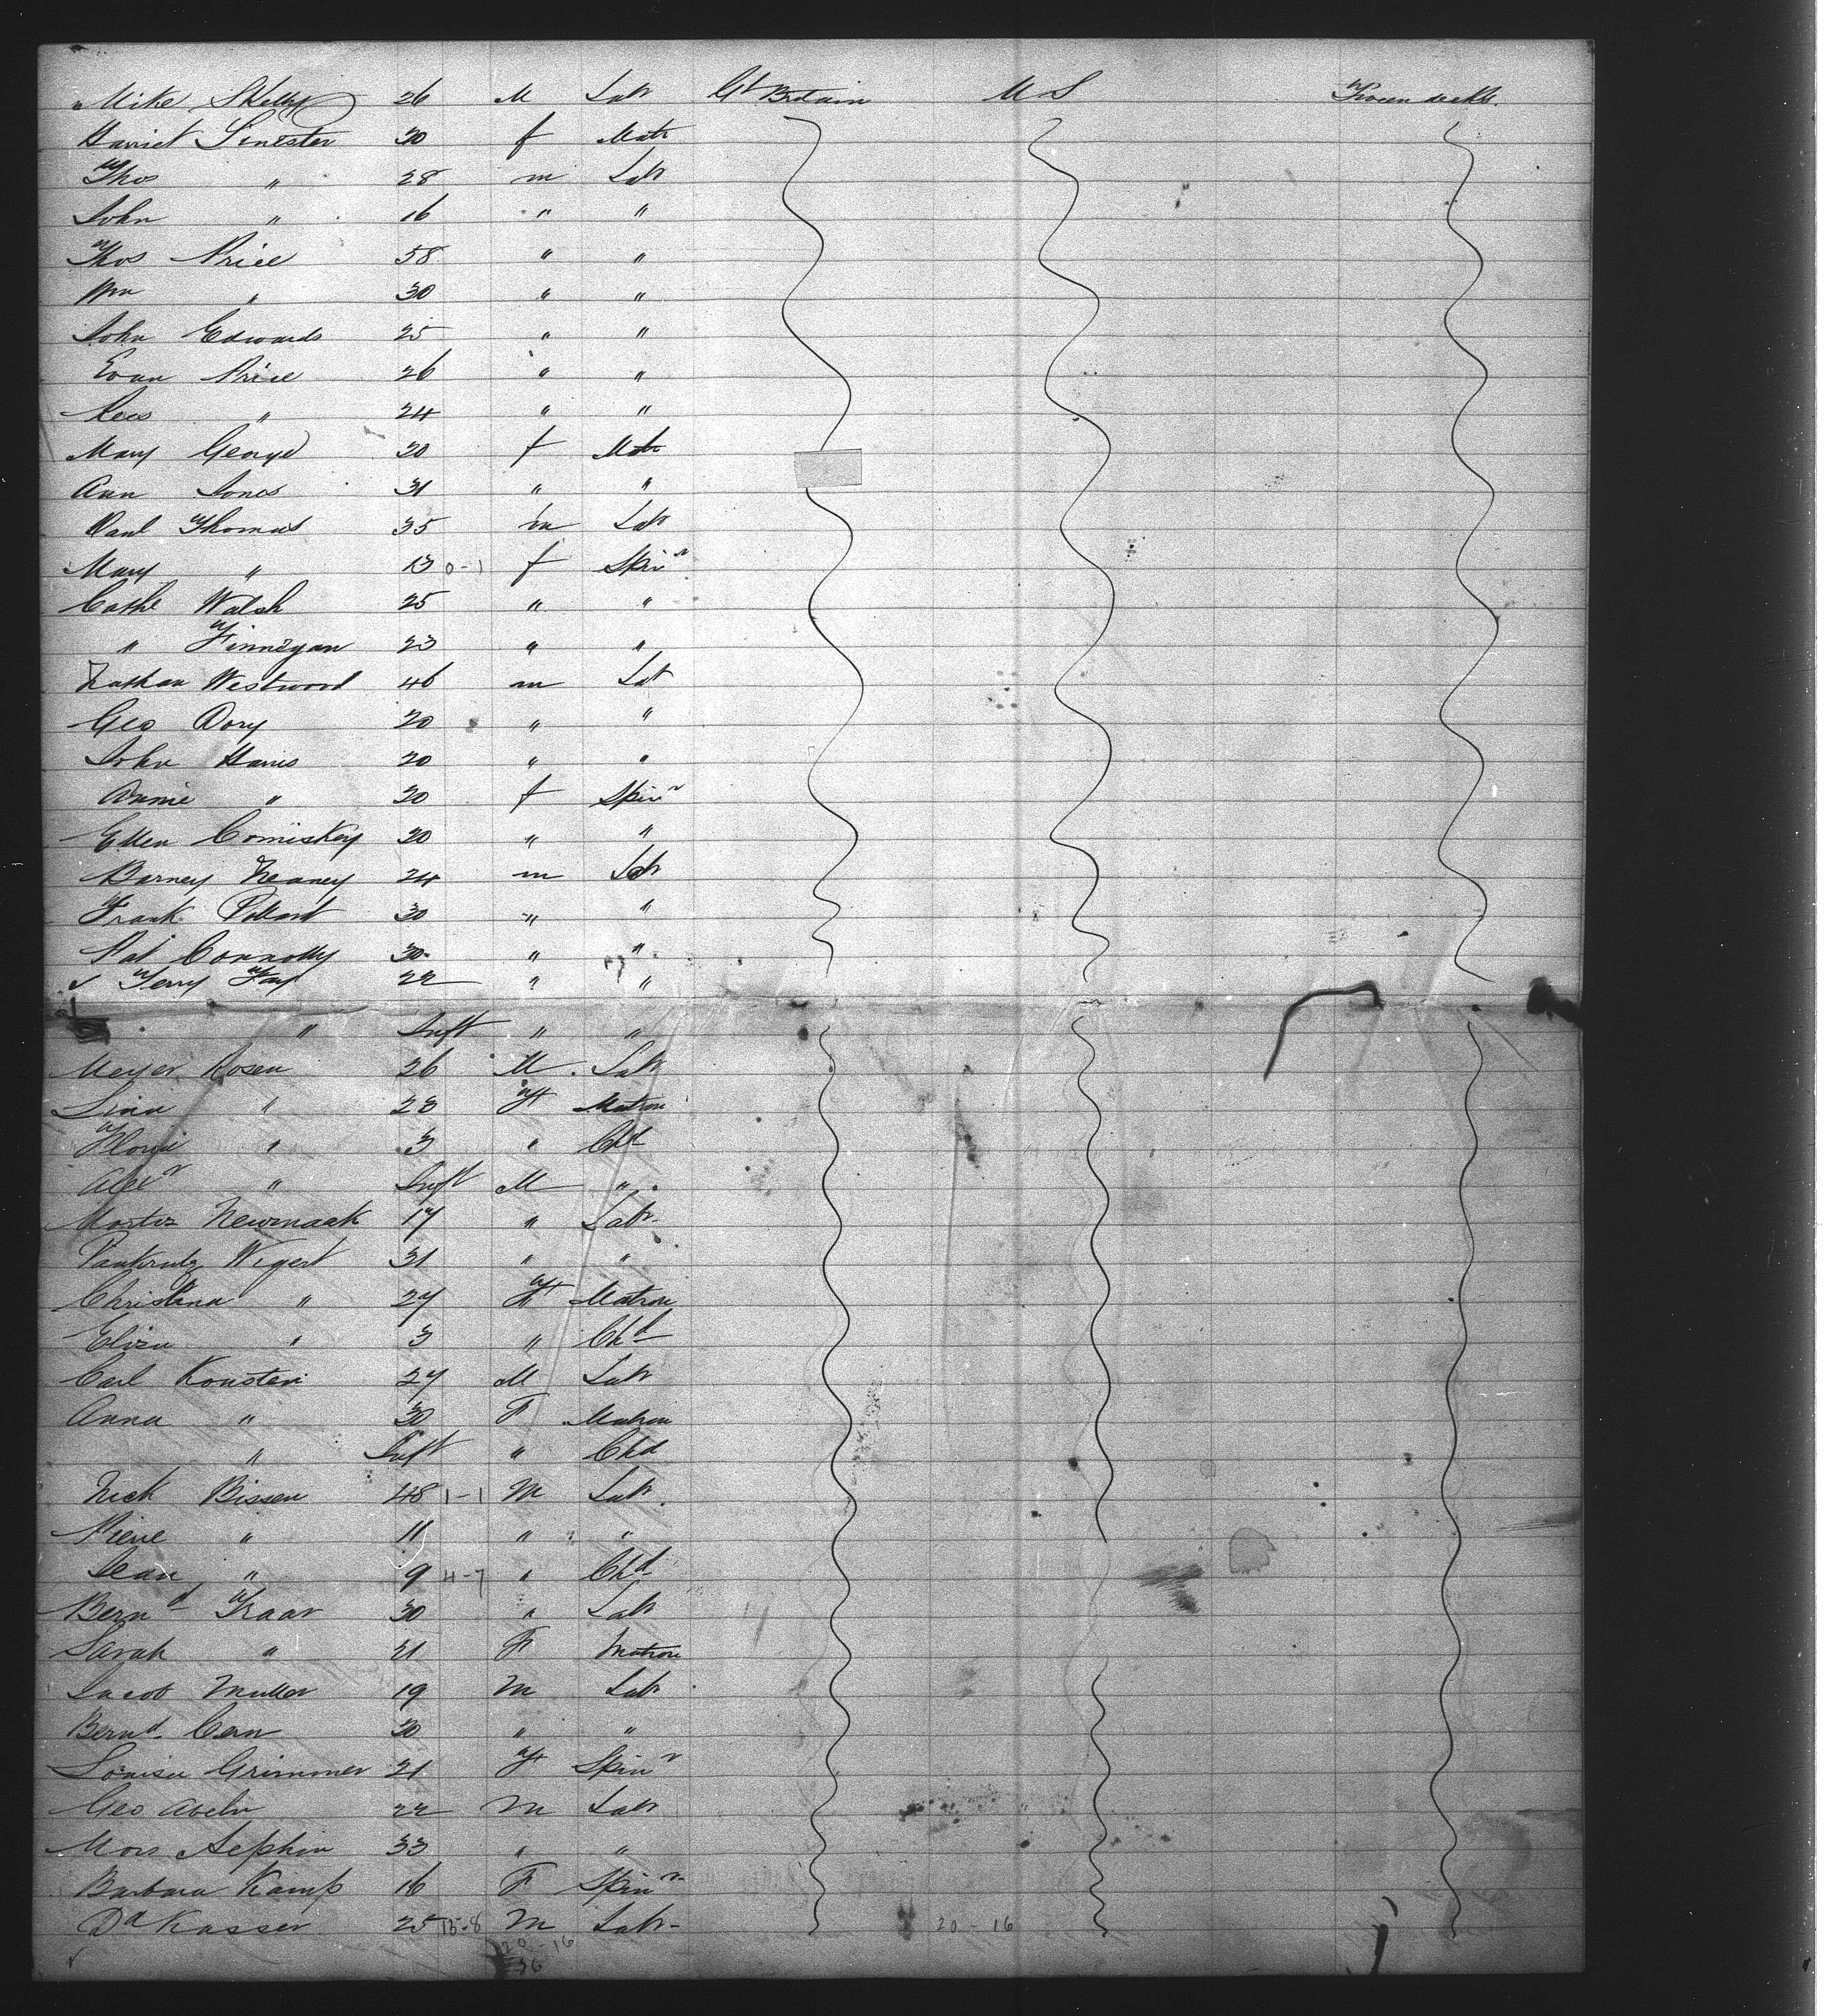 Mike Skelly 26 M Labr Gt Britain U S Tween decks.
Harriet 30 f Matr
Thos " 28 m Labr
John " 16 " "
Thos Price 58 " "
Wm " 30 " "
John Edwards 25 " "
Evan Price 26 " "
Rees " 24 " "
Mary George 20 f Matr
Ann Jones 31 " "
Danl Thomas 35 m Labr
Mary " 13 0-1 f Spinr
Cathe Walsh 25 " "
" Finnegan 23 " "
Nathan Westwood 46 m Lab
Geo Dory 20 " "
John Harris 20 " "
Annie " 20 f Spinr
Ellen Comiskey 20 " "
Barney Heaney 24 m Labr
Frank Pollard 30 " "
Pat Connolly 30 " "
Terry Fay 22 " "
" Inft " "
Meyer Rosen 26 M Labr
Lina " 23 F Matron
" 3 " Chd
Alexr " Inft M "
Newmark 17 " Labr
Wigert 31 " "
Christina " 27 F Matron
Eliza " 3 " Chd
Carl Konsten 27 M Labr
Anna " 30 F Matron
" Inft " Chd
Nick Bissen 48 1-1 M Labr
Pierre " 11 " "
Jean " 9 4-7 " Chd
Bernd Fraar 30 " Labr
Sarah " 21 F Matron
Jacob Muller 19 M Labr
Bernd Cern 20 " "
Louisa Grimmer 21 F Spinr
Geo Abeln 22 M Labr
33 " "
Barbara Kamp 16 F Spinr
Dd Kasser 25 15-8 M Labr 20-16
20-16
36